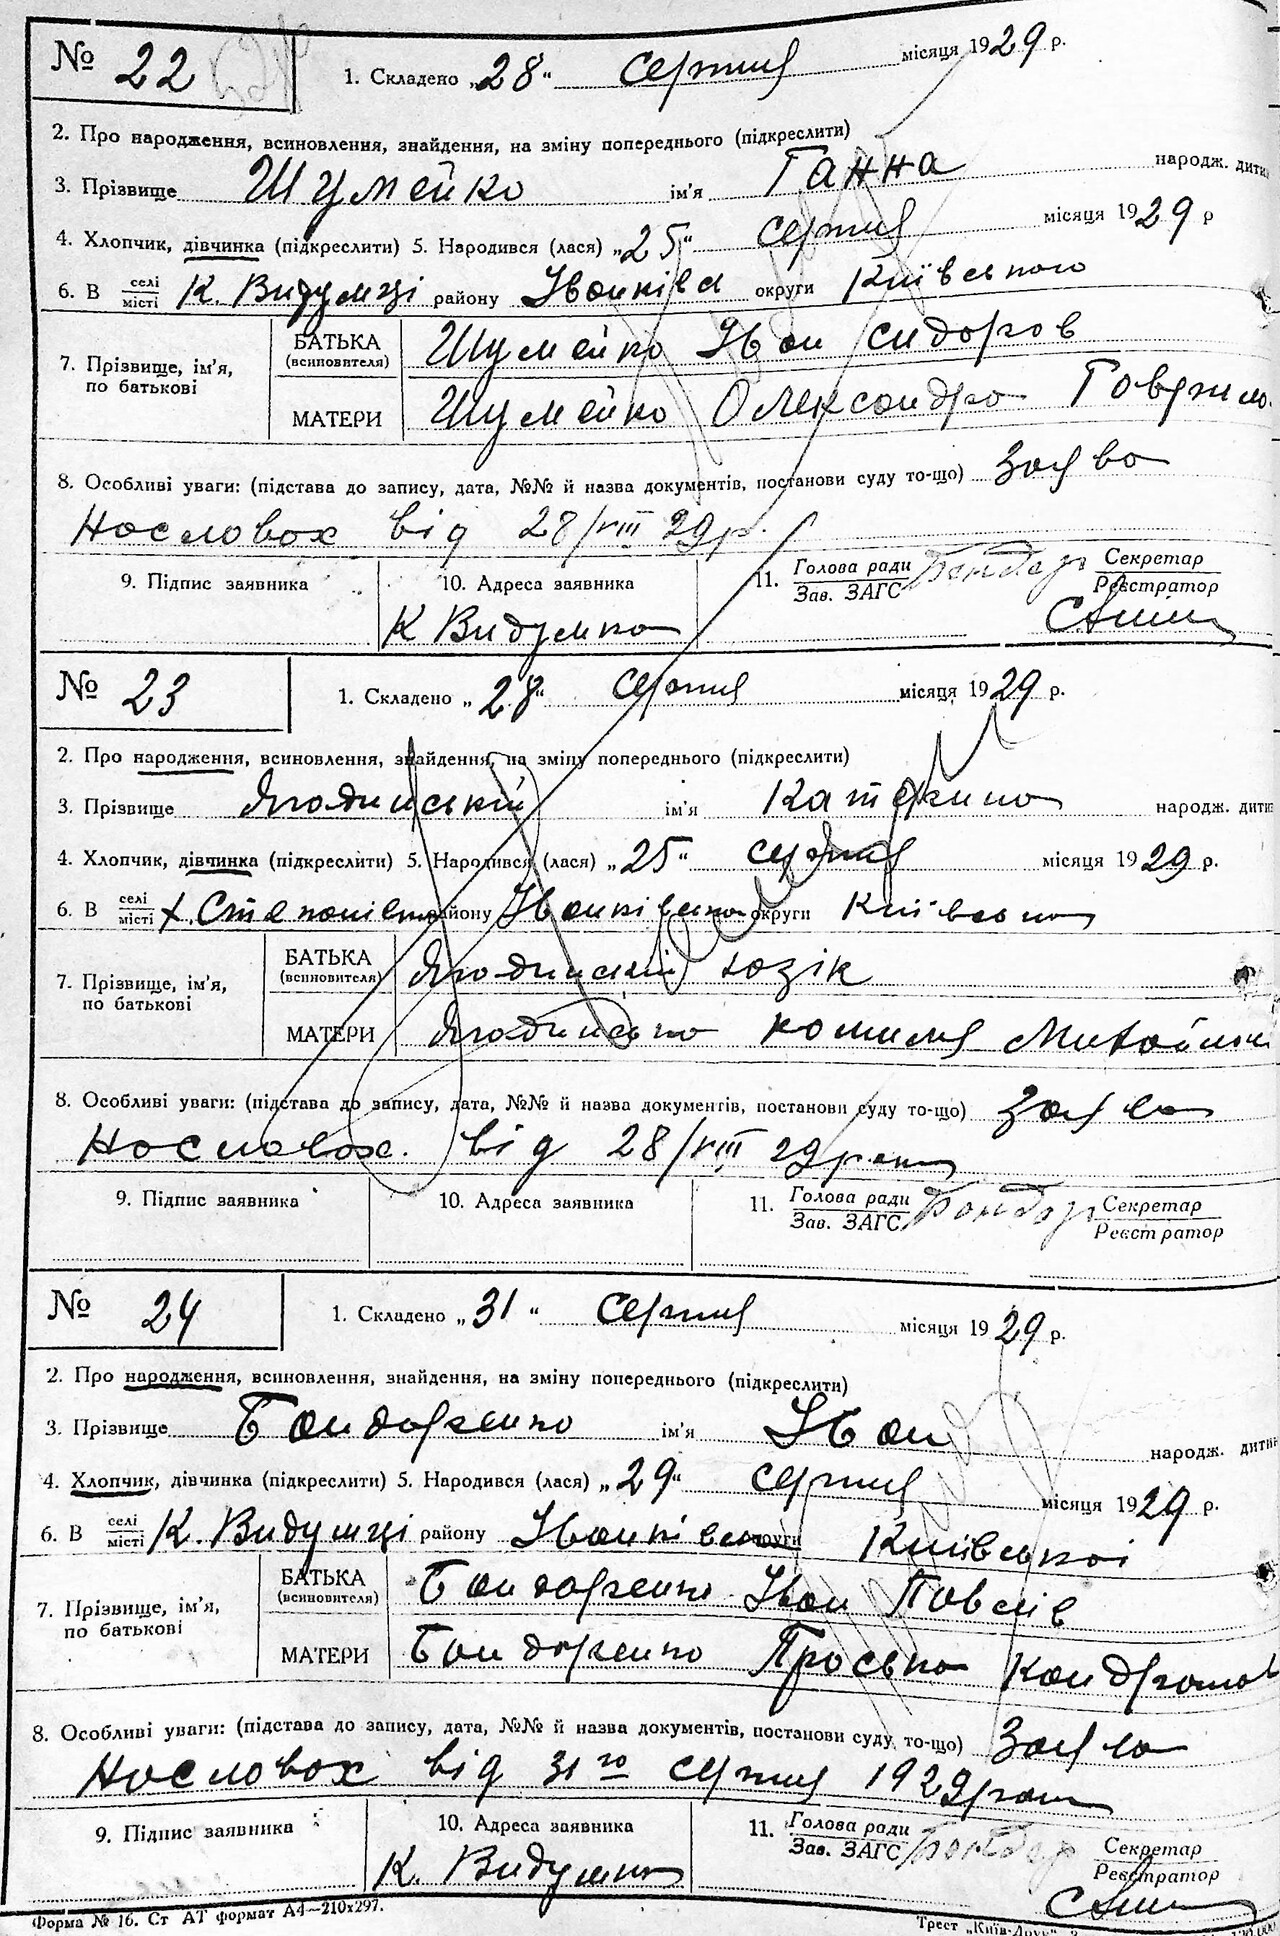 № 22
1. Складено „28“ серпня місяця 1929 р.
2. Про народження, всиновлення, знайдення, на зміну попереднього (підкреслити)
3. Прізвище Шумейко ім'я Ганна народж. дитин
4. Хлопчик, дівчинка (підкреслити) 5. Народився (лася) „25“ серпня місяця 1929 р
6. В селі місті К. Видумці району Іванків округи Київського
7. Прізвище, ім'я, по батькові
БАТЬКА (всиновителя) Шумейко Іван Сидоров
МАТЕРИ Шумейко Олександра Говрило
8. Особливі уваги: (підстава до запису, дата, №№ й назва документів, постанови суду то-що) Заява
На словах від 28/VIII 29 р.
9. Підпис заявника 10. Адреса заявника 11. Голова ради Зав. ЗАГС Бондар Секретар Реєстратор
К Видумка
№ 23
1. Складено „28“ серпня місяця 1929 р.
2. Про народження, всиновлення, знайдення, на зміну попереднього (підкреслити)
3. Прізвище Ягодинській ім'я Катерина народж. дитин
4. Хлопчик, дівчинка (підкреслити) 5. Народився (лася) „25“ серпня місяця 1929 р.
6. В селі місті х. Степанівка району Іванківсько округи Київсько
7. Прізвище, ім'я, по батькові
БАТЬКА (всиновителя) Ягодинскій Юзік
МАТЕРИ Ягодинсько Михайлів
8. Особливі уваги: (підстава до запису, дата, №№ й назва документів, постанови суду то-що) Заява
На словах. від 28/VIII 29 року
9. Підпис заявника 10. Адреса заявника 11. Голова ради Зав. ЗАГС Бондар Секретар Реєстратор
№ 24
1. Складено „31“ серпня місяця 1929 р.
2. Про народження, всиновлення, знайдення, на зміну попереднього (підкреслити)
3. Прізвище Бондаренко ім'я Іван народж. дитин
4. Хлопчик, дівчинка (підкреслити) 5. Народився (лася) „29“ серпня місяця 1929 р.
6. В селі місті К. Видумці району Іванківсько округи Київської
7. Прізвище, ім'я, по батькові
БАТЬКА (всиновителя) Бондаренко Іван Павлів
МАТЕРИ Бондаренко Проська Кондратов
8. Особливі уваги: (підстава до запису, дата, №№ й назва документів, постанови суду то-що) Заява
На словах від 31го серпня 1929 року
9. Підпис заявника 10. Адреса заявника 11. Голова ради Зав. ЗАГС Бондар Секретар Реєстратор
К. Видумка
Форма № 16. Ст АТ формат А4—210х297.
Трест „Київ-Друк“